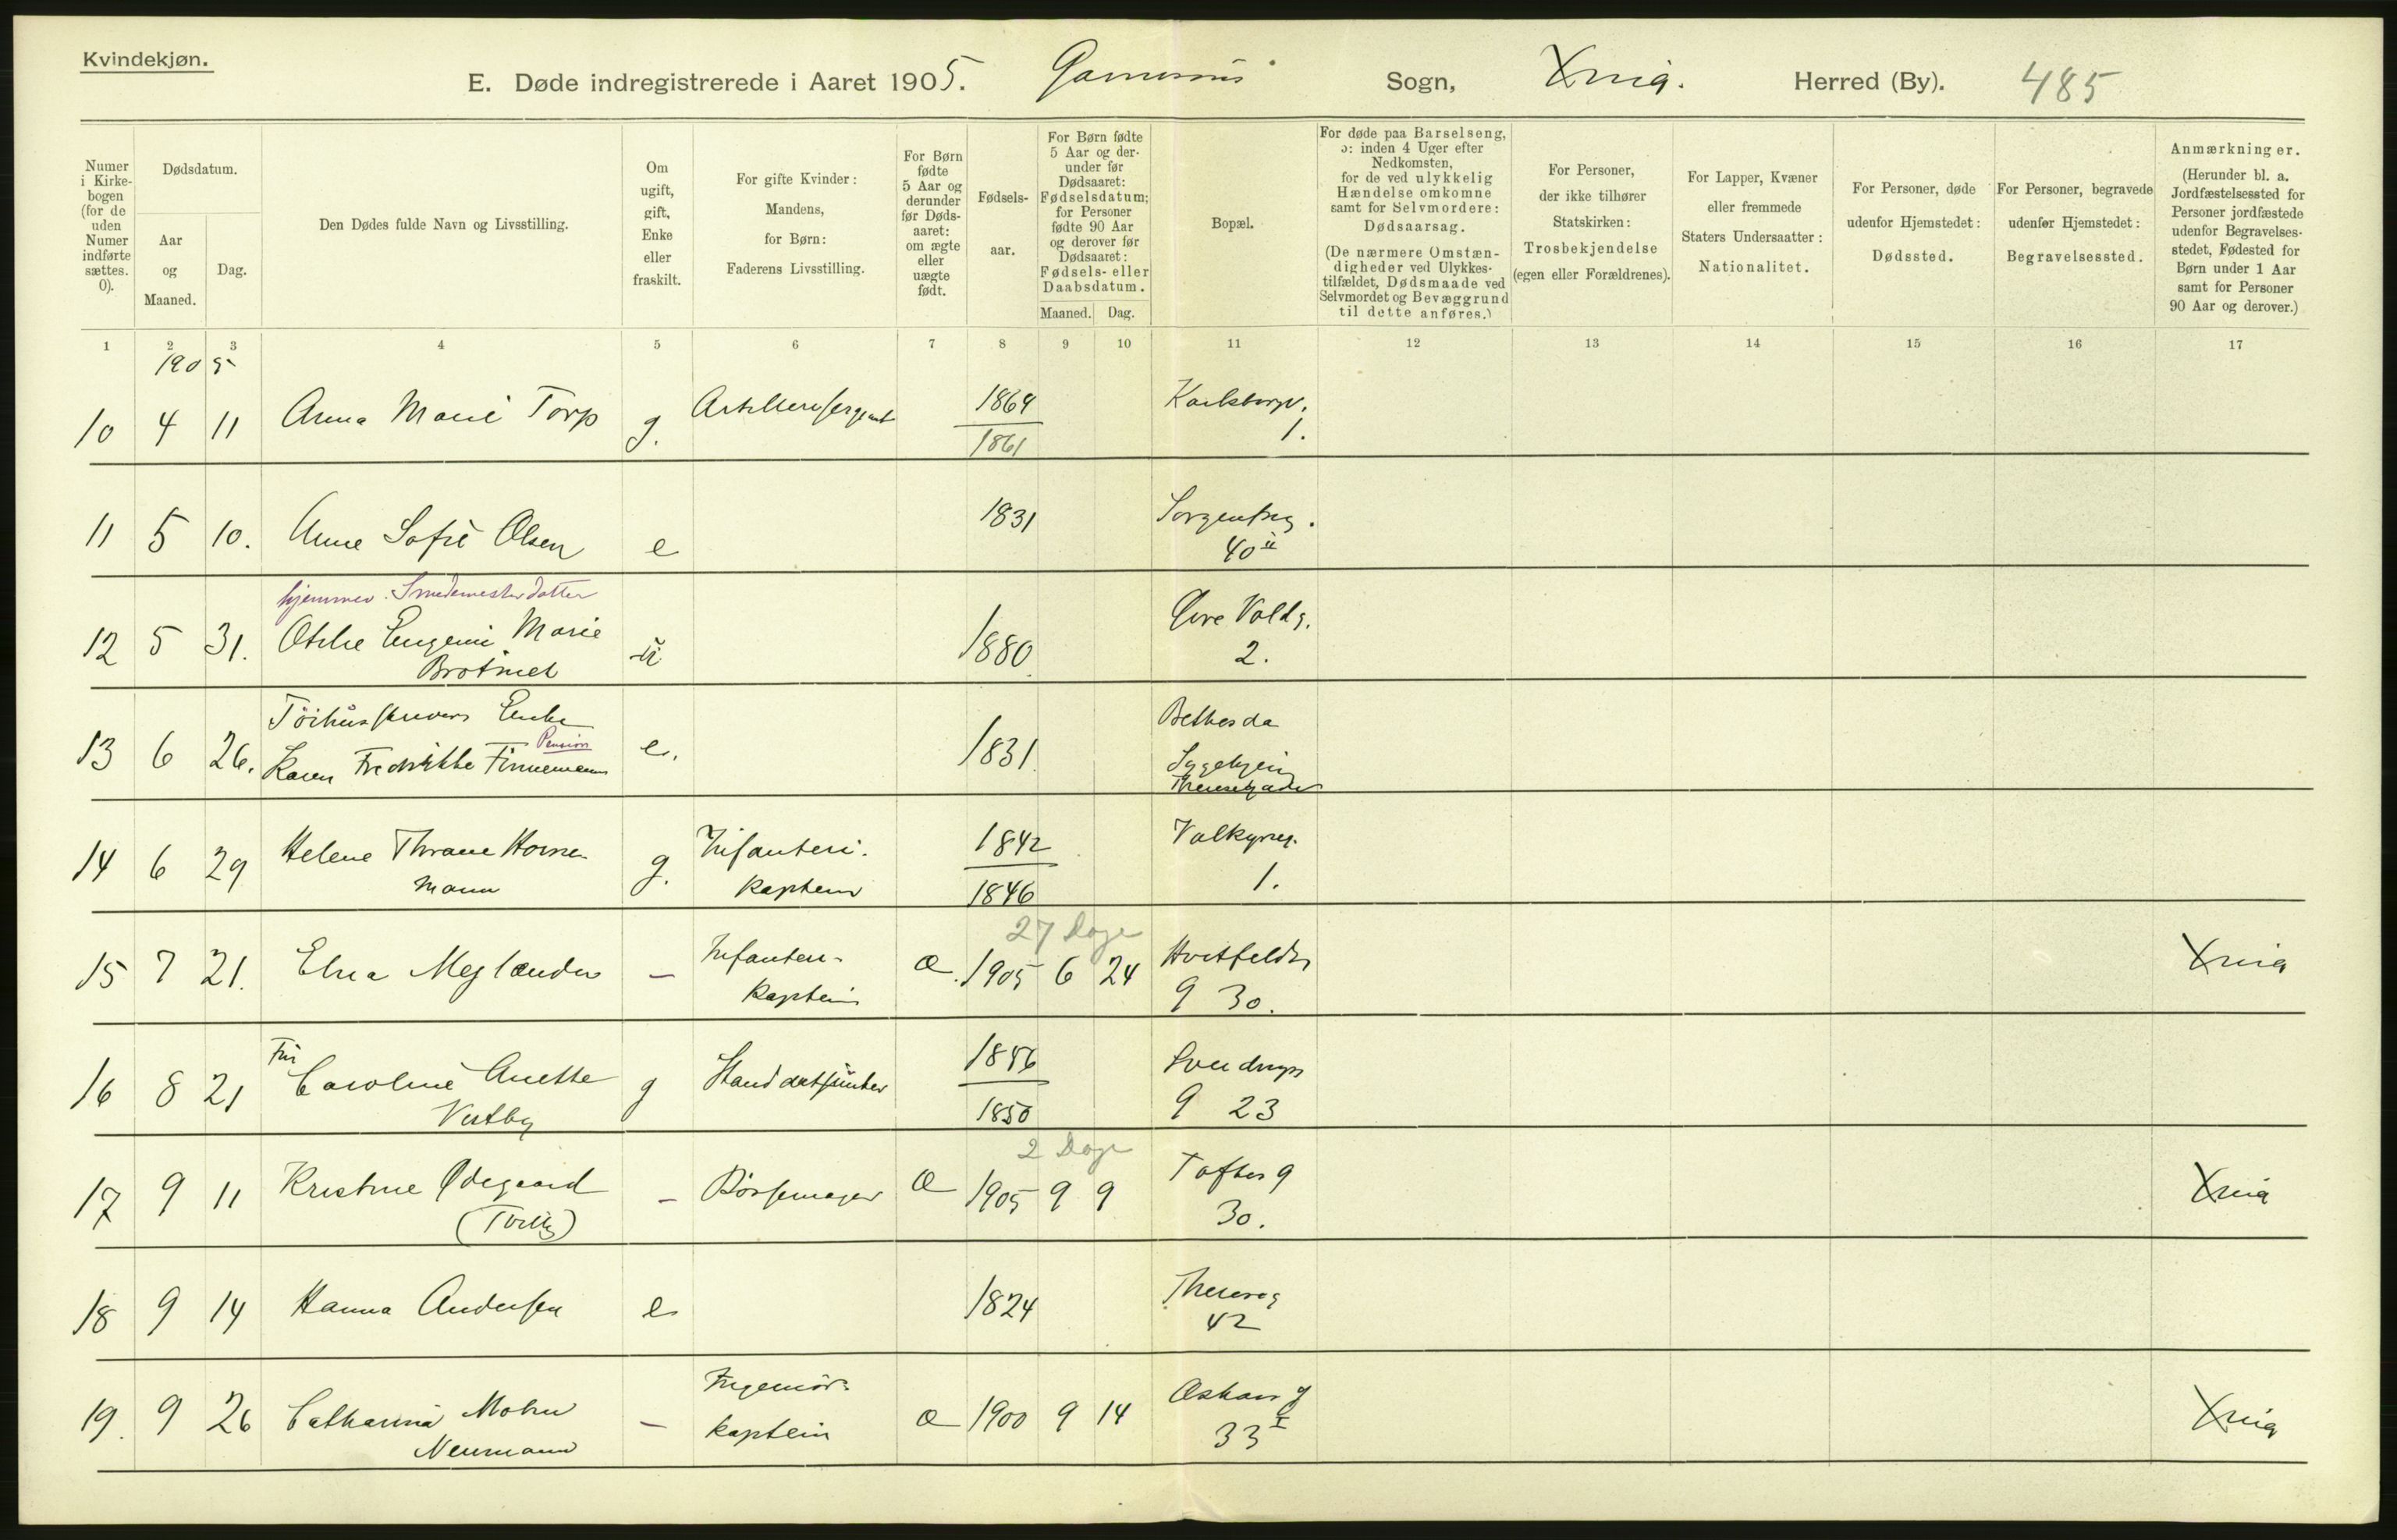 Kvindekjøn.
E. Døde indregistrerede i Aaret 1905. Garnisons Sogn, Xnia. Herred (By). 485
Numer i Kirkebogen (for de uden Numer indførte sættes. 0).
Dødsdatum.
Aar og Maaned.
Dag.
Den Dødes fulde Navn og Livsstilling.
Om ugift, gift, Enke eller fraskilt.
For gifte Kvinder: Mandens, for Børn: Faderens Livsstilling.
For Børn fødte 5 Aar og derunder før Dødsaaret: om ægte eller uægte født.
Fødselsaar.
For Børn fødte 5 Aar og derunder før Dødsaaret: Fødselsdatum; for Personer fødte 90 Aar og derover før Dødsaaret: Fødsels- eller Daabsdatum.
Maaned. Dag.
Bopæl.
For døde paa Barselseng, ɔ: inden 4 Uger efter Nedkomsten, for de ved ulykkelig Hændelse omkomne samt for Selvmordere: Dødsaarsag. (De nærmere Omstændigheder ved Ulykkestilfældet, Dødsmaade ved Selvmordet og Bevæggrund til dette anføres.)
For Personer, der ikke tilhører Statskirken: Trosbekjendelse (egen eller Forældrenes).
For Lapper, Kvæner eller fremmede Staters Undersaatter: Nationalitet.
For Personer, døde udenfor Hjemstedet: Dødssted.
For Personer, begravede udenfor Hjemstedet: Begravelsessted.
Anmærkninger. (Herunder bl. a. Jordfæstelsessted for Personer jordfæstede udenfor Begravelsesstedet, Fødested for Børn under 1 Aar samt for Personer 90 Aar og derover.)
1 2 3 4 5 6 7 8 9 10 11 12 13 14 15 16 17
1905
10 4 11 Anna Marie Torp g. Artillerisergeant 1864 1861 Karlsborgv. 1.
11 5 10. Anne Sofie Olsen e 1831 Sorgenfrig. 40 II
hjemmev. Smedemesterdatter
12 5 31. Otilie Eugenie Marie u 1880 Øvre Voldg. 2.
Tøihusskrivers Enke
Pension
13 6 26. Karen Fredrikke Finnemann e. 1831 Bethesda Sygehjem Theresegaden
14 6 29 Helene Thrane Hornemann g. Infanterikaptein 1842 1846 Valkyrieg. 1.
27 Dage
15 7 21. Elna Meglænder — Infanterikaptein Æ. 1905 6 24 Hvitfeldts g 30. Xnia
16 8 21 Fru Caroline Anette Vestby g Standartjunker 1846 1850 Sverdrups g 23
2 Dage
17 9 11 Kristine Ødegaard — Børsemager Æ 1905 9 9 Toftes g 30. Xnia
18 9 14 Hanna Andersen e 1824 Thereseg 42
19. 9 26 Catharina Mohn Neumann — Ingeniørkaptein Æ 1900 9 14 Oskars g 33 I Xnia